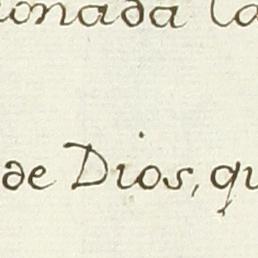 ionada la
de Dios, qu